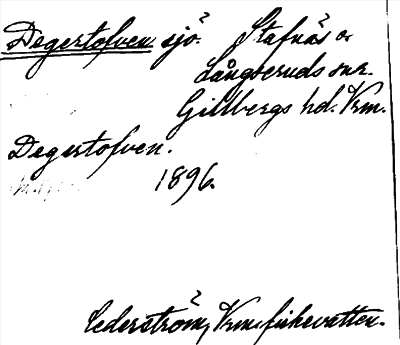 Degertofven sjö. Stafnäs o.
Långseruds snr.
Gillbergs hd. Vrm.
Degertofven.
1896.
Cederström, Vrm. fiskevatten.